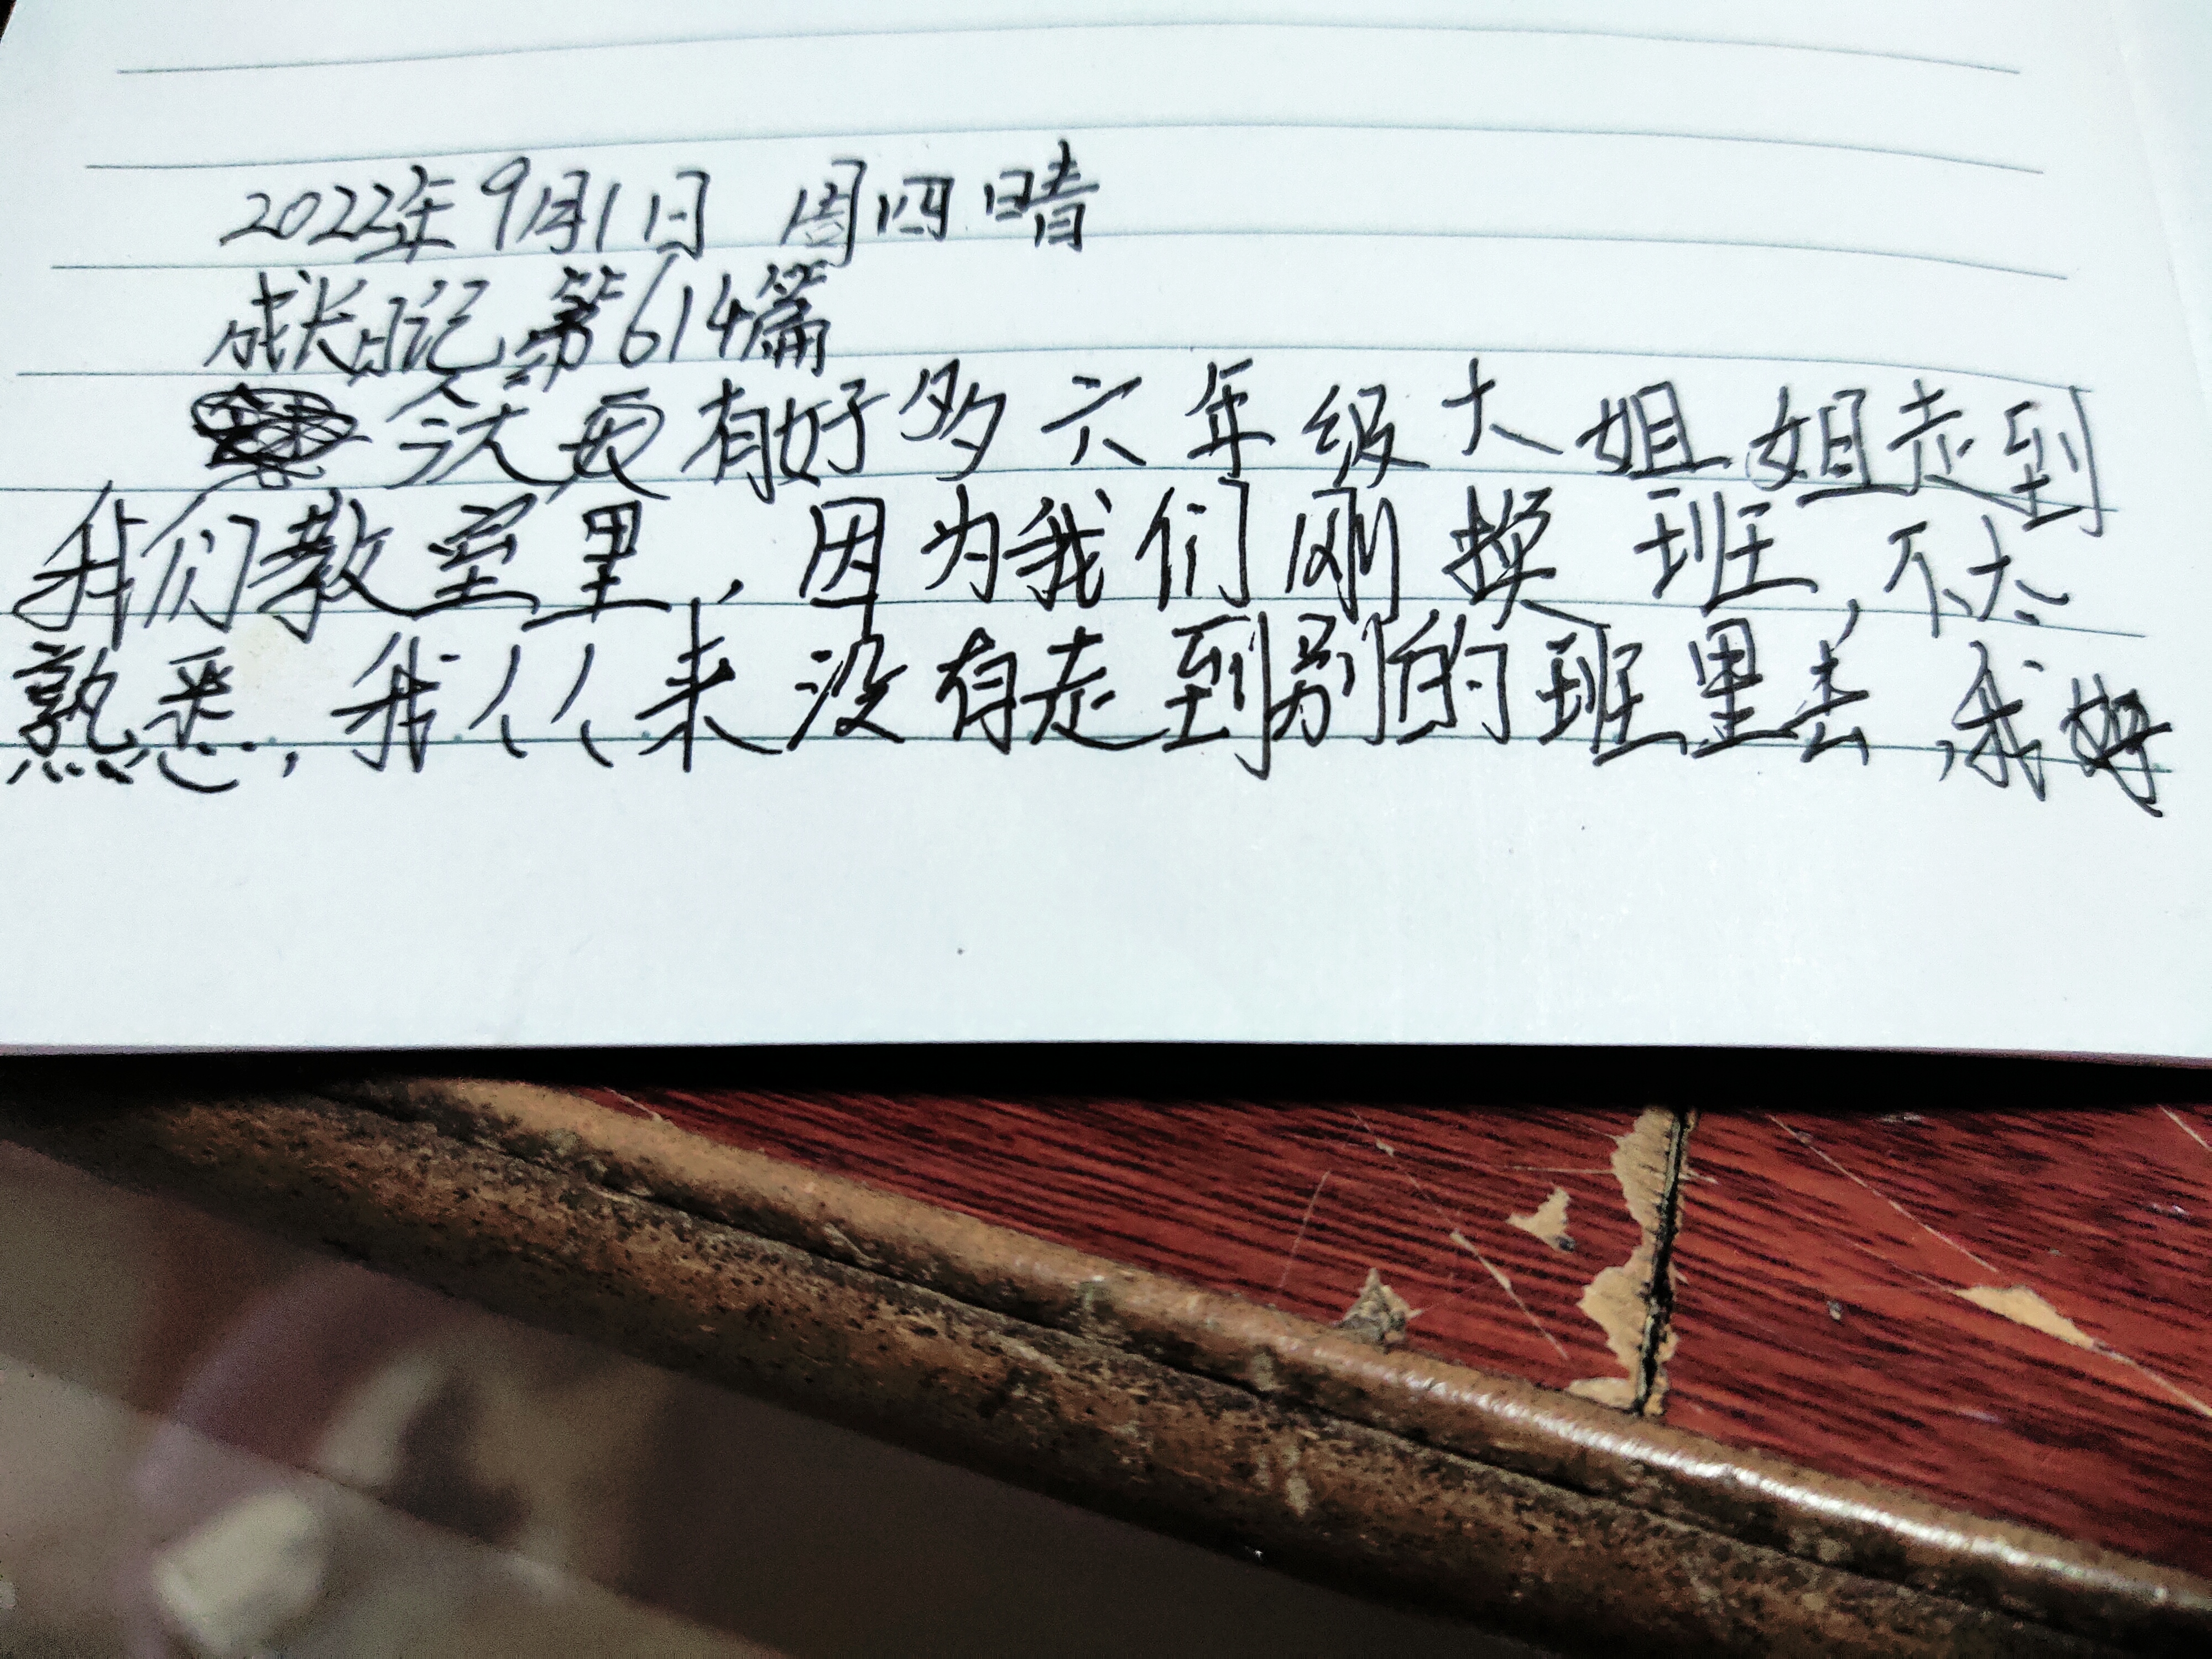 2022年9月1日 周四 晴
成长日记第614篇
今天 有好多六年级大姐姐走到
我们教室里,因为我们刚换班,不太
熟悉,我从来没有走到别的班里去,我好